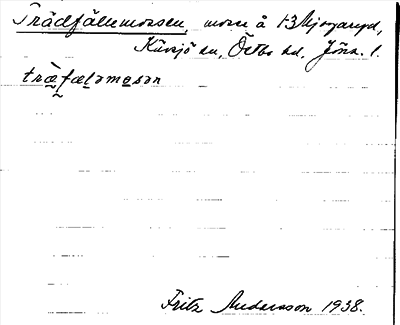 Trädfälemossen, mosse å 1-3 Mjogaryd,
Kävsjö sn, Östbo hd, Jönk. l.
træ̀fælamesan
Fritz Andersson 1938.